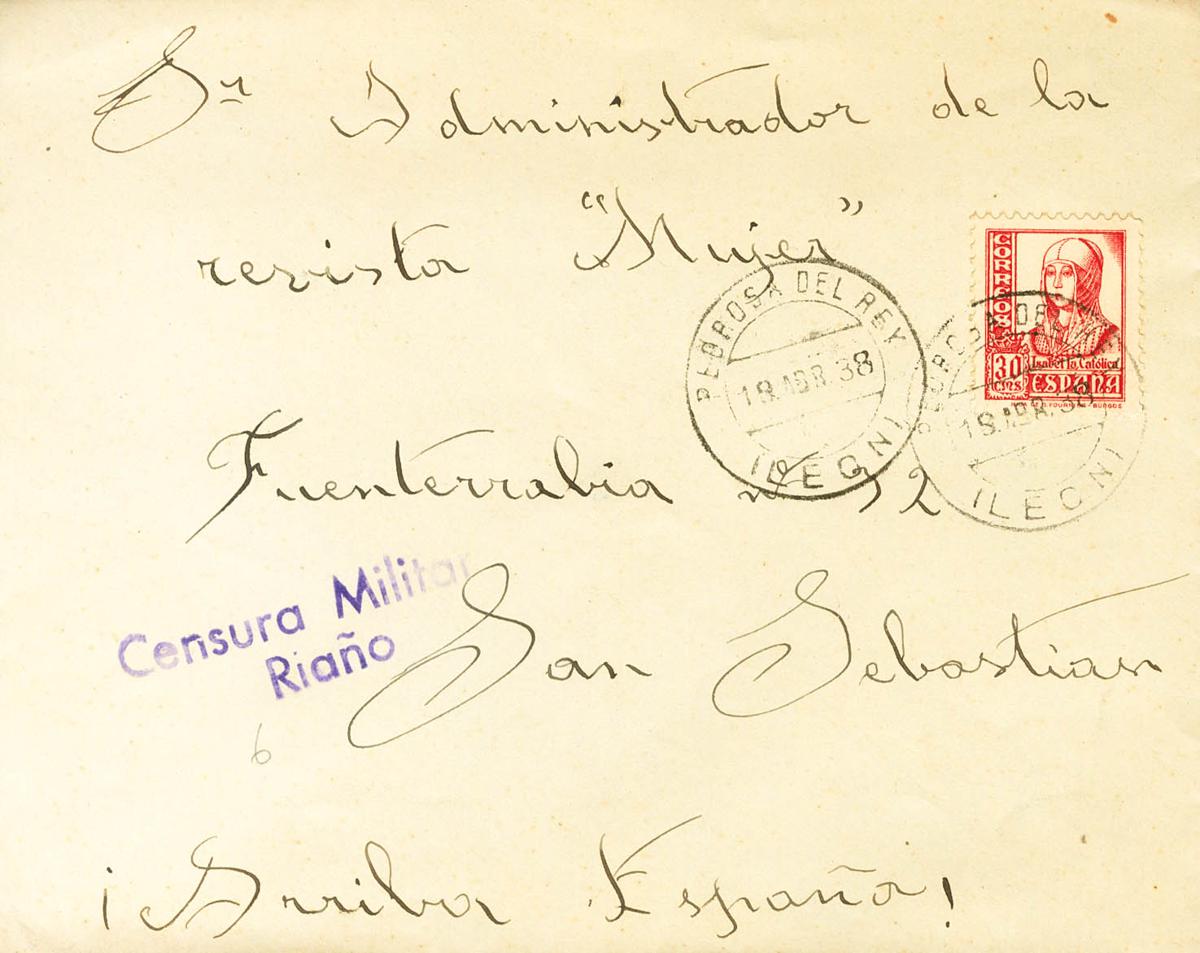 Sr Administrador de la
revista "Mujer"
Fuenterrabia nº 12
San Sebastian
¡Arriba España!
Censura Militar
Riaño
6
PEDROSA DEL REY
18. ABR. 38
(LEON)
PEDROSA DEL REY
18. ABR. 38
(LEON)
CORREOS
30
CMS
Isabel la Católica
ESPAÑA
FOURNIER BURGOS